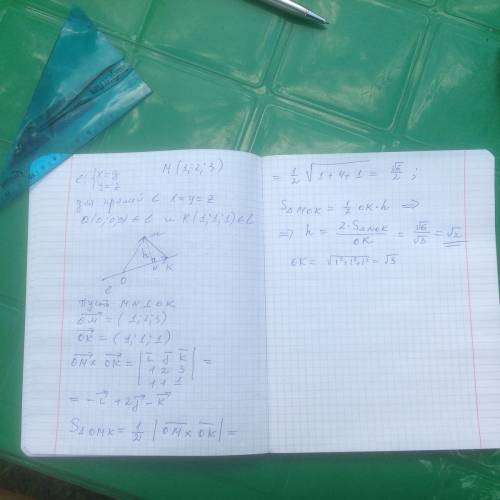 ℓ: { x=y
y=z
M(1; 2; 3)
для прямой ℓ x=y=z
O(0;0;0) ∈ ℓ и K(1;1;1) ∈ ℓ
M
h
ℓ O N K
Пусть MN ⊥ OK
OM⃗ = (1; 2; 3)
OK⃗ = (1; 1; 1)
OM⃗ × OK⃗ = | i⃗ j⃗ k⃗ | =
1 2 3
1 1 1
= -i⃗ + 2j⃗ - k⃗
S△OMK = 1/2 | OM⃗ × OK⃗ | =
= 1/2 √(1+4+1) = √6/2 ;
S△MOK = 1/2 OK·h ⇒
⇒ h = 2·S△MOK / OK = √6/√3 = √2
OK = √(1²+1²+1²) = √3